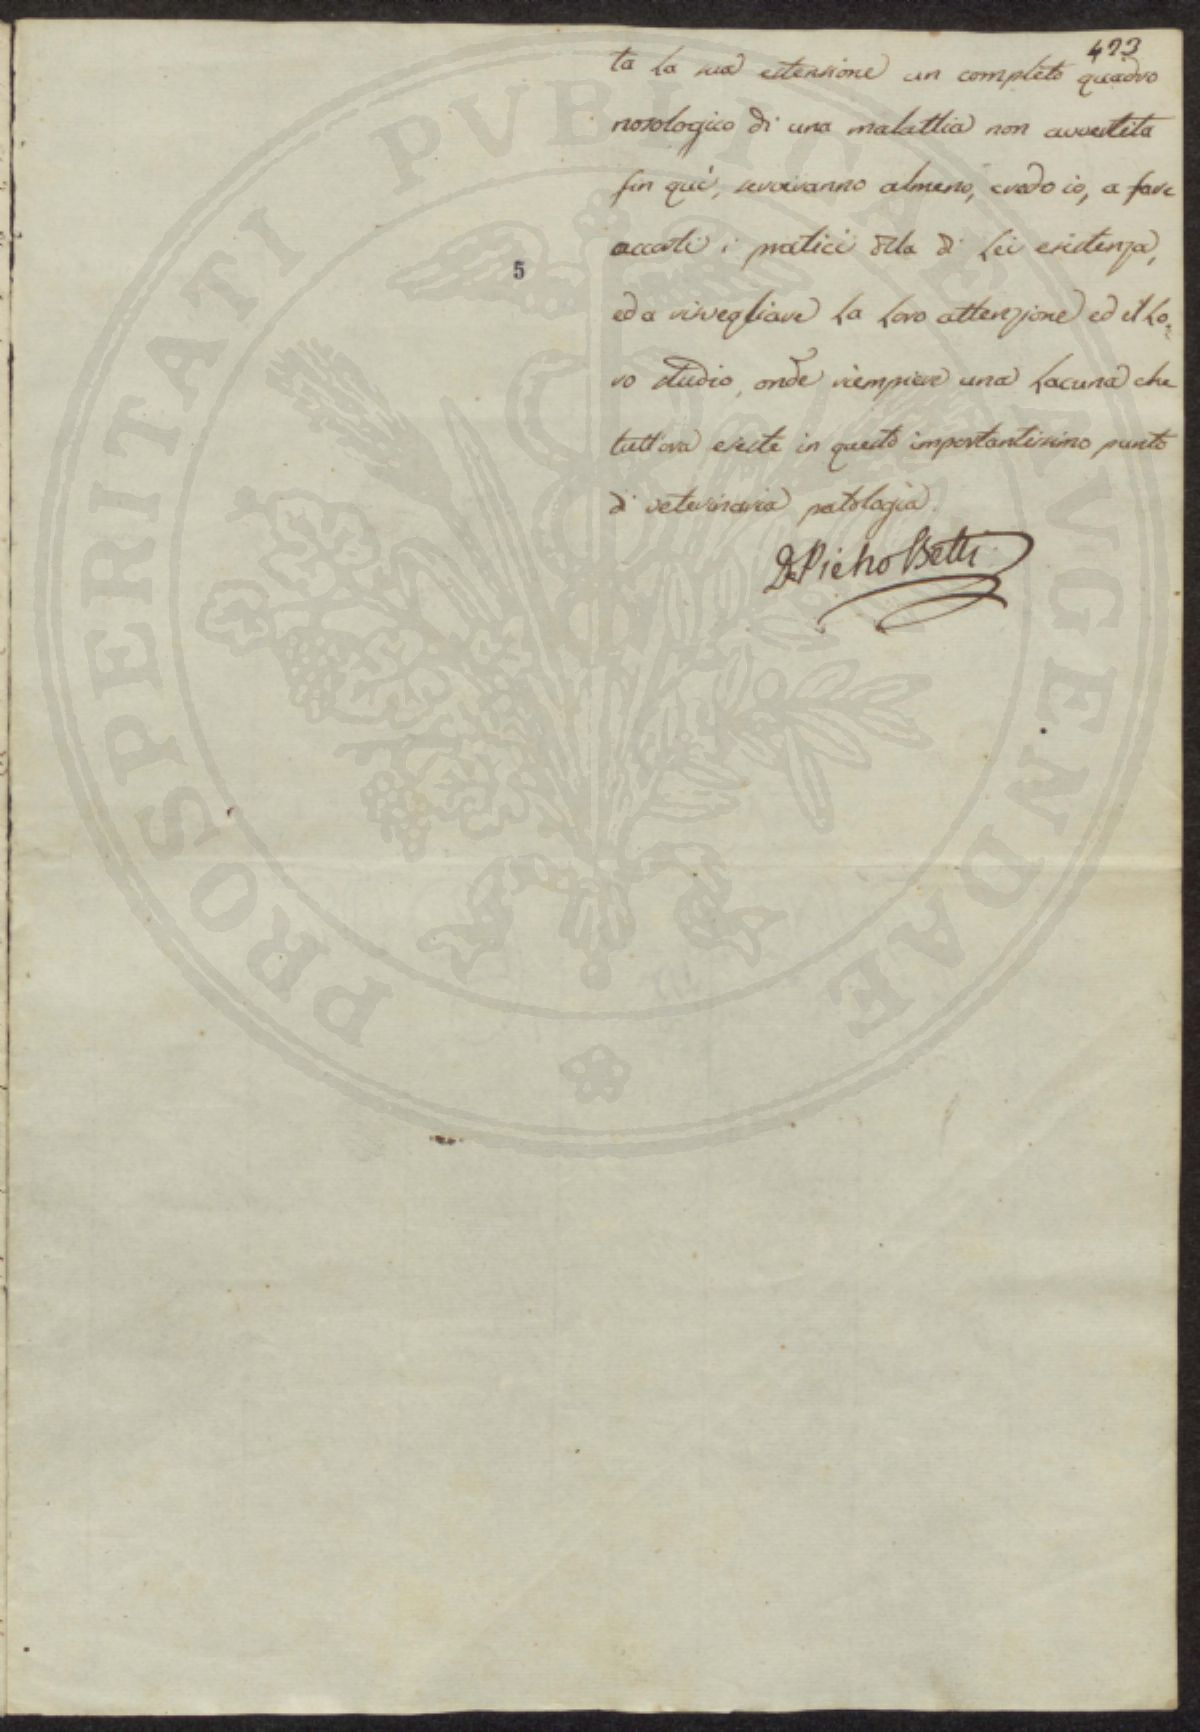 423
ta la sua estensione un completo quadro
nosologico di una malattia non avvertita
fin quì, serviranno almeno, credo io, a fare
accorti i pratici della di Lei esistenza,
ed a risvegliare la loro attenzione ed il lo=
ro studio, onde riempiere una lacuna che
tuttora esiste in questo importantissimo punto
di veterinaria patologia.
Dr Pietro Betti
5
PROSPERITATI PVBLICAE AVGENDAE